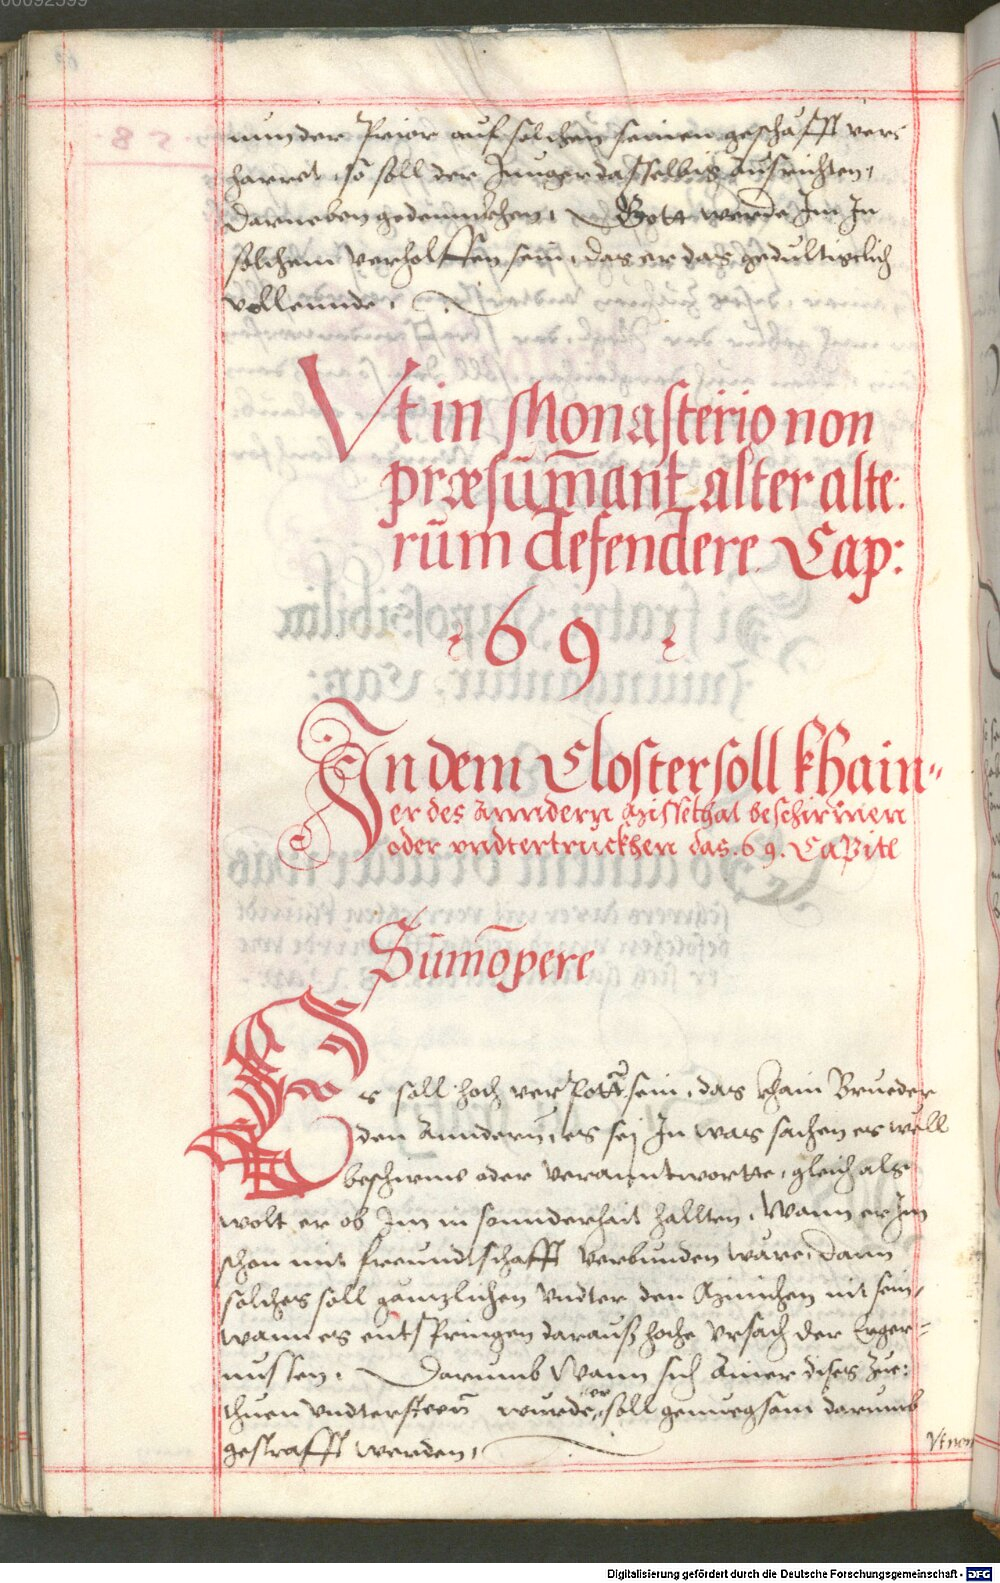 nun der Prior auf solchen seinen geschäfft ver-
harret, so soll der Junger dasselbig Ausrichten,
Darneben gedennckhen, Gott werde Im In
solchem verholffen sein, das er das gedultigclich
vollennde.
Vt in Monasterio non
præsūmant alter alte:
rūm defendere Cap:
69
In dem Closter soll khain-
er des Anndern Missethat beschirmen
oder vndtertruckhen das .69. Capitl
Sūmopere
Es soll hoch verpott sein, das khain Brueder
den Anndern, es sej In was sachen es well
beschirme oder verantwortte, gleich als
wolt er ob Im in sonnderhait hallten, Wann er Im
schon mit freundtschafft verbunden ware, Dann
solches soll gänzlichen vndter den München nit sein,
wann es entspringen darauß hohe vrsach der Erger-
nussen. Darumb Wann sich Ainer dises Zue:
thuen vndtersteen wurde, er soll genuegsam darumb
gestrafft werden,
Vt non
Digitalisierung gefördert durch die Deutsche Forschungsgemeinschaft - DFG